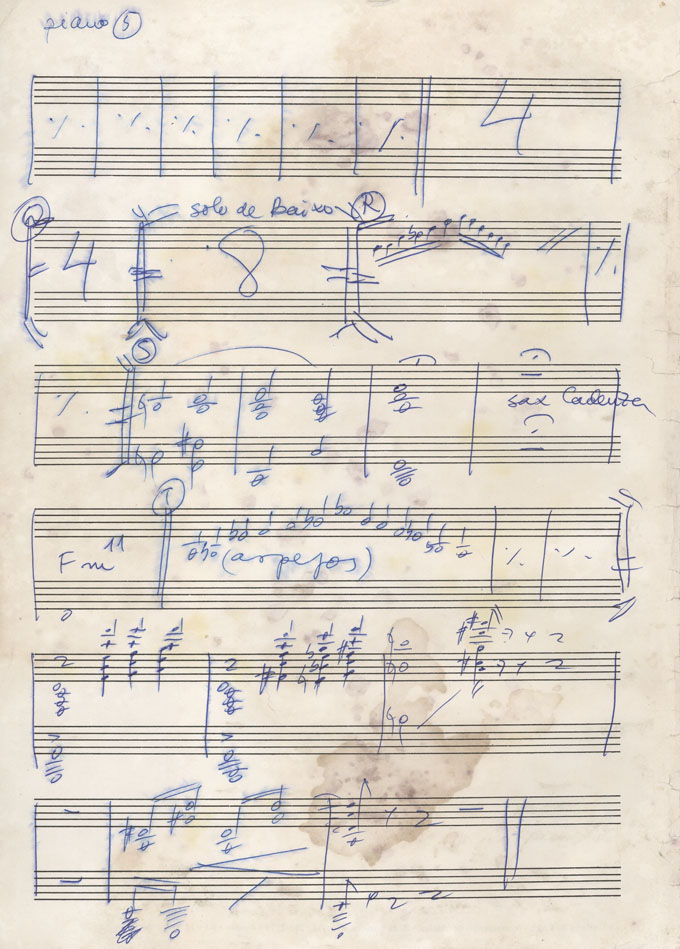 piano 5
4
Q solo de Baixo R
4 8
S
sax Cadenza
T
Fm11 (arpejos)